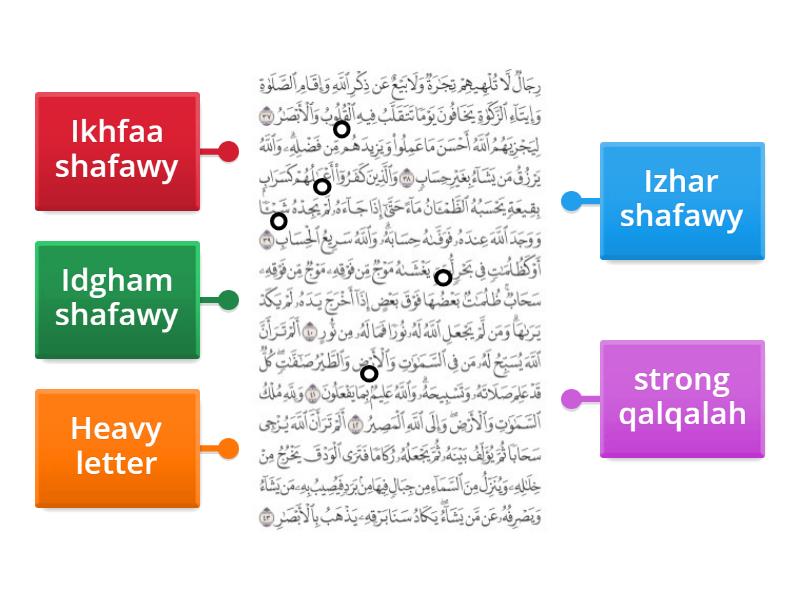 Ikhfaa
shafawy
Idgham
shafawy
Heavy
letter
رِجَالٌ لَّا تُلْهِيهِمْ تِجَٰرَةٌ وَلَا بَيْعٌ عَن ذِكْرِ ٱللَّهِ وَإِقَامِ ٱلصَّلَوٰةِ
وَإِيتَآءِ ٱلزَّكَوٰةِ يَخَافُونَ يَوْمًا تَتَقَلَّبُ فِيهِ ٱلْقُلُوبُ وَٱلْأَبْصَٰرُ ٣٧
لِيَجْزِيَهُمُ ٱللَّهُ أَحْسَنَ مَا عَمِلُوا۟ وَيَزِيدَهُم مِّن فَضْلِهِۦ وَٱللَّهُ
يَرْزُقُ مَن يَشَآءُ بِغَيْرِ حِسَابٍ ٣٨ وَٱلَّذِينَ كَفَرُوٓا۟ أَعْمَٰلُهُمْ كَسَرَابٍۭ
بِقِيعَةٍ يَحْسَبُهُ ٱلظَّمْـَٔانُ مَآءً حَتَّىٰٓ إِذَا جَآءَهُۥ لَمْ يَجِدْهُ شَيْـًٔا
وَوَجَدَ ٱللَّهَ عِندَهُۥ فَوَفَّىٰهُ حِسَابَهُۥ وَٱللَّهُ سَرِيعُ ٱلْحِسَابِ ٣٩
أَوْ كَظُلُمَٰتٍ فِى بَحْرٍ لُّجِّىٍّ يَغْشَىٰهُ مَوْجٌ مِّن فَوْقِهِۦ مَوْجٌ مِّن فَوْقِهِۦ
سَحَابٌ ظُلُمَٰتٌۢ بَعْضُهَا فَوْقَ بَعْضٍ إِذَآ أَخْرَجَ يَدَهُۥ لَمْ يَكَدْ
يَرَىٰهَا وَمَن لَّمْ يَجْعَلِ ٱللَّهُ لَهُۥ نُورًا فَمَا لَهُۥ مِن نُّورٍ ٤٠ أَلَمْ تَرَ أَنَّ
ٱللَّهَ يُسَبِّحُ لَهُۥ مَن فِى ٱلسَّمَٰوَٰتِ وَٱلْأَرْضِ وَٱلطَّيْرُ صَٰٓفَّٰتٍ كُلٌّ
قَدْ عَلِمَ صَلَاتَهُۥ وَتَسْبِيحَهُۥ وَٱللَّهُ عَلِيمٌۢ بِمَا يَفْعَلُونَ ٤١ وَلِلَّهِ مُلْكُ
ٱلسَّمَٰوَٰتِ وَٱلْأَرْضِ وَإِلَى ٱللَّهِ ٱلْمَصِيرُ ٤٢ أَلَمْ تَرَ أَنَّ ٱللَّهَ يُزْجِى
سَحَابًا ثُمَّ يُؤَلِّفُ بَيْنَهُۥ ثُمَّ يَجْعَلُهُۥ رُكَامًا فَتَرَى ٱلْوَدْقَ يَخْرُجُ مِنْ
خِلَٰلِهِۦ وَيُنَزِّلُ مِنَ ٱلسَّمَآءِ مِن جِبَالٍ فِيهَا مِنۢ بَرَدٍ فَيُصِيبُ بِهِۦ مَن يَشَآءُ
وَيَصْرِفُهُۥ عَن مَّن يَشَآءُ يَكَادُ سَنَا بَرْقِهِۦ يَذْهَبُ بِٱلْأَبْصَٰرِ ٤٣
Izhar
shafawy
strong
qalqalah